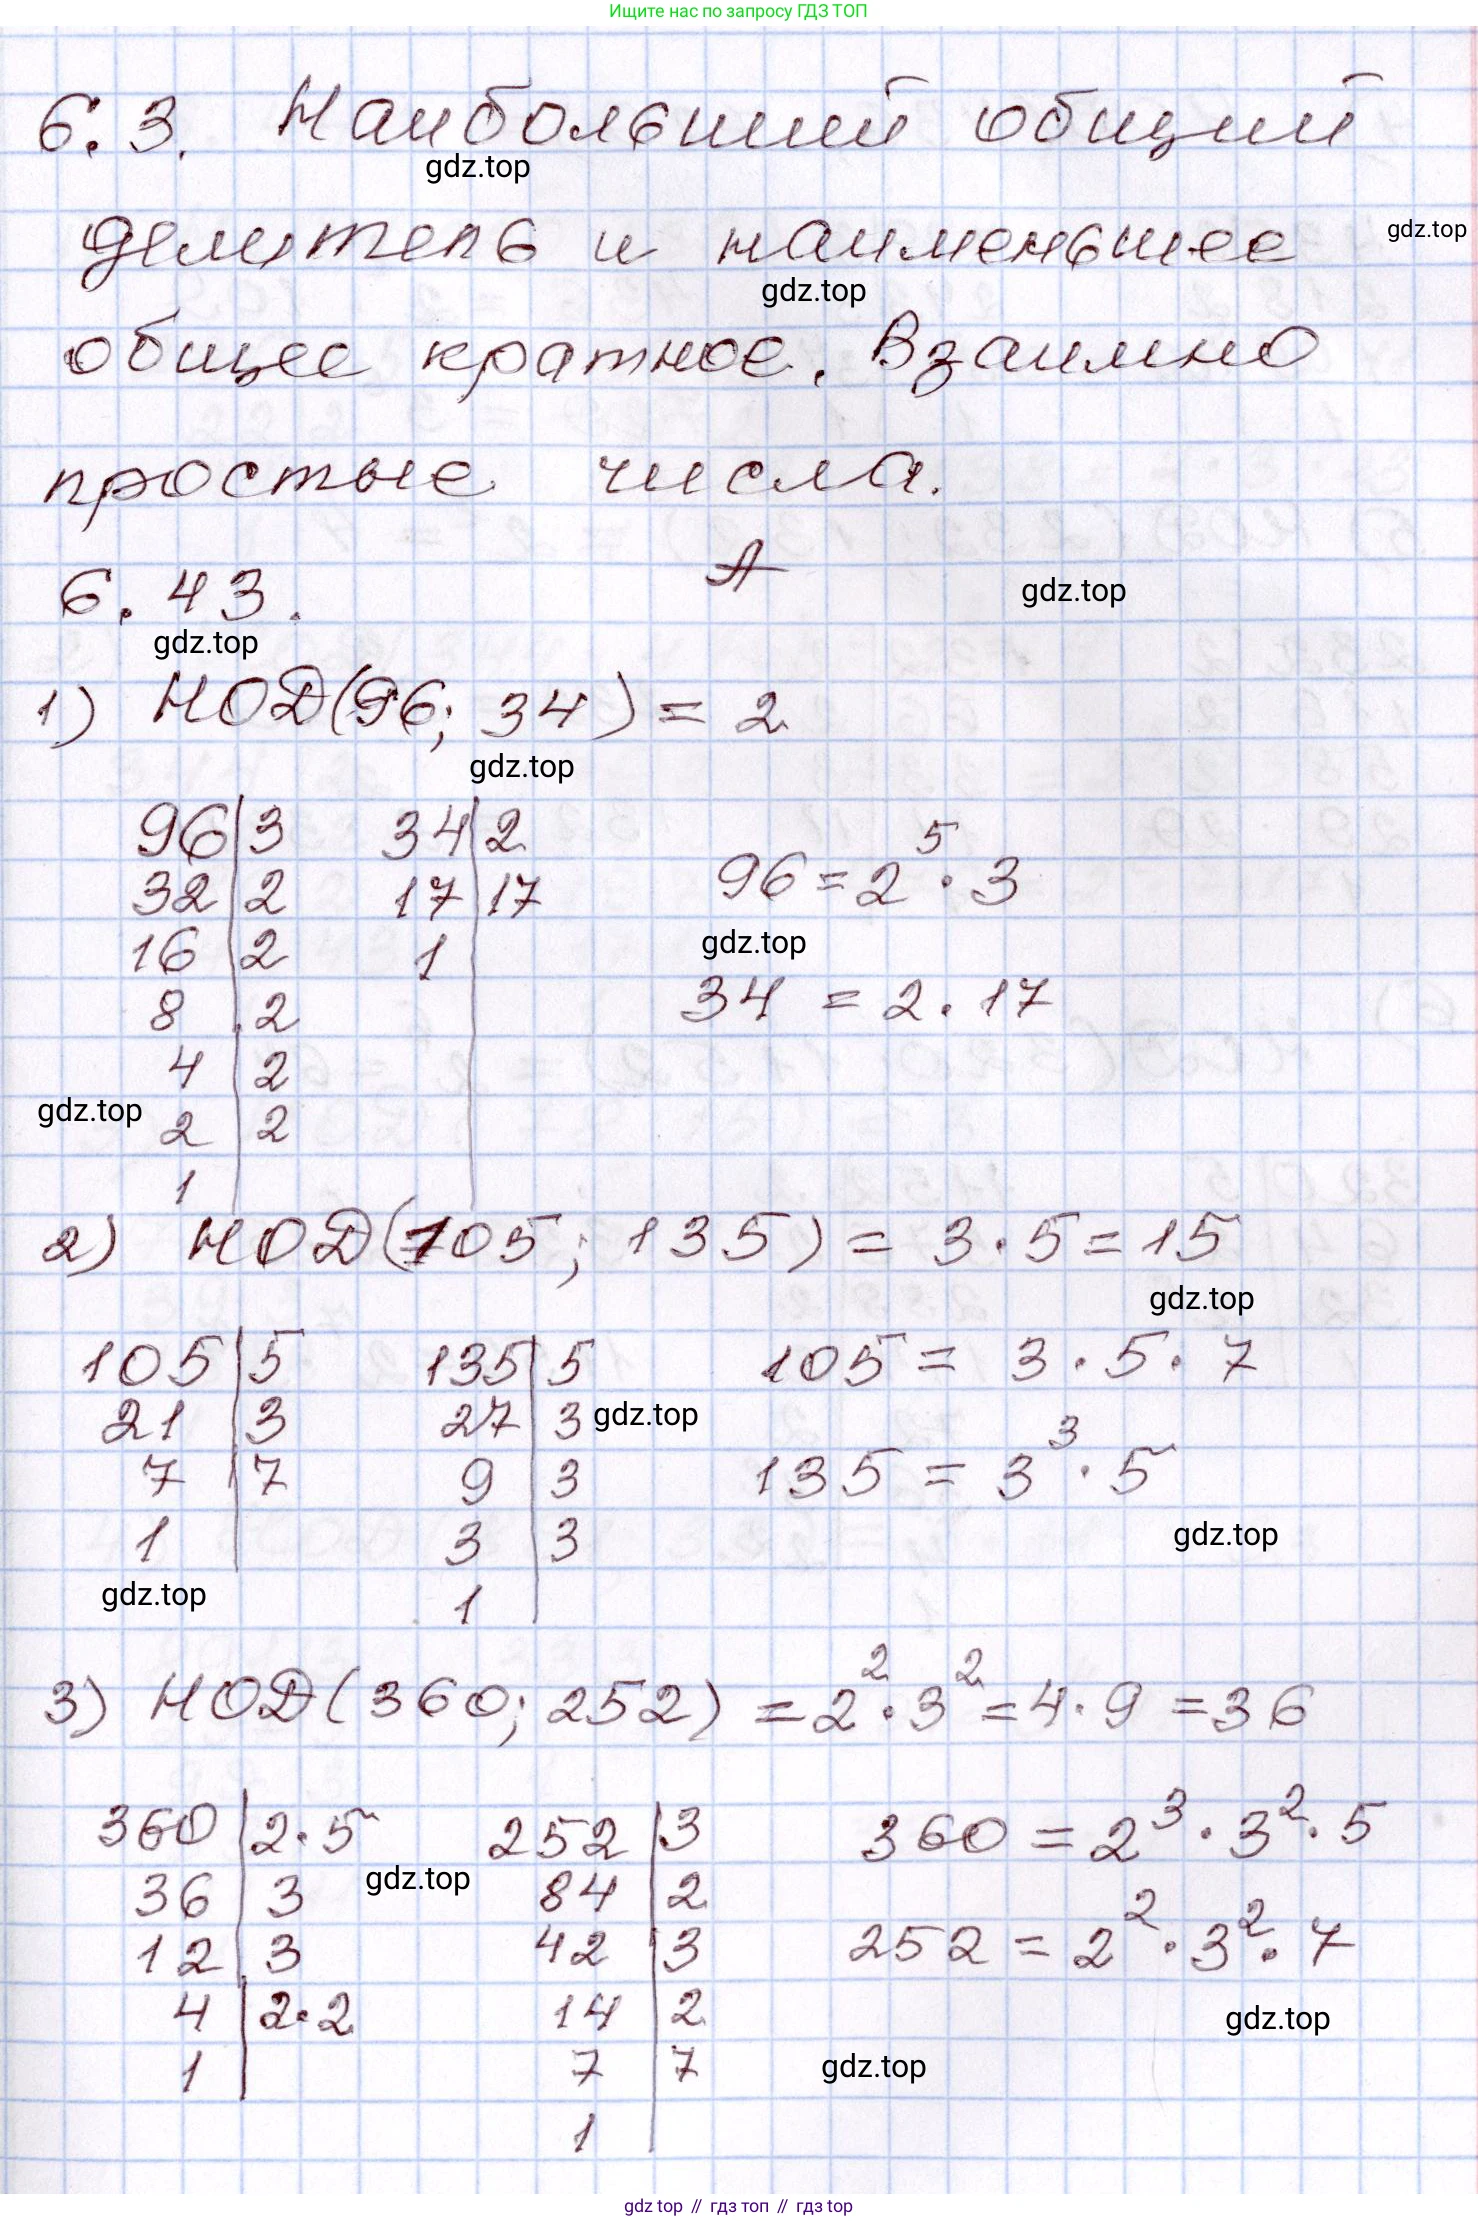 Ищите нас по запросу ГДЗ ТОП
6.3. Наибольший общий
gdz.top
делитель и наименьшее
gdz.top
gdz.top
общее кратное. Взаимно
простые числа.
А
6.43.
gdz.top
gdz.top
1) НОД(96; 34) = 2
gdz.top
96|3 34|2
32|2 17|17 96 = 2⁵ · 3
16|2 1
gdz.top
8|2 34 = 2 · 17
4|2
gdz.top
2|2
1
2) НОД(105; 135) = 3 · 5 = 15
gdz.top
105|5 135|5 105 = 3 · 5 · 7
21|3 27|3 gdz.top
7|7 9|3 135 = 3³ · 5
1 3|3
gdz.top
gdz.top
1
3) НОД(360; 252) = 2² · 3² = 4 · 9 = 36
360|2·5 252|3 360 = 2³ · 3² · 5
gdz.top
36|3 84|2
12|3 42|3 252 = 2² · 3² · 7
4|2·2 14|2
gdz.top
1 7|7
gdz.top
1
gdz top // гдз топ // гдз top